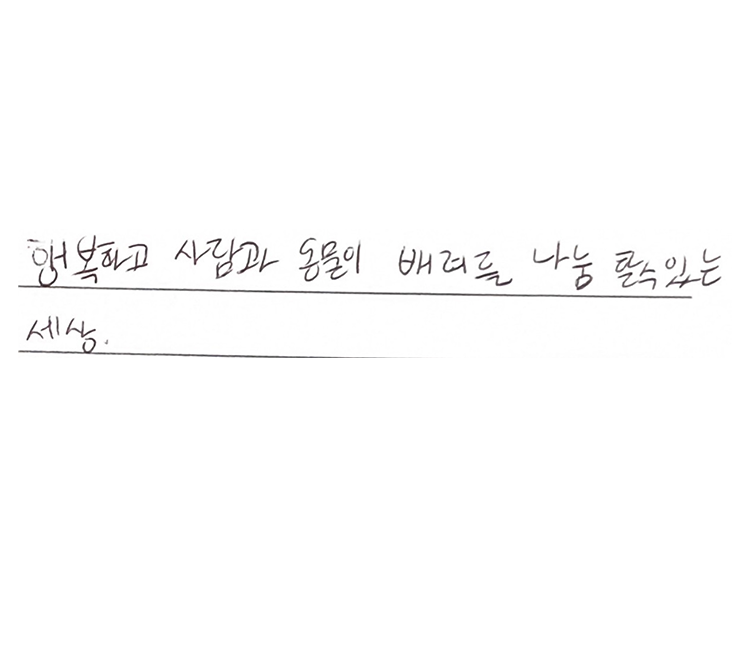 행복하고 사람과 동물이 배려를 나눔 할수있는
세상.